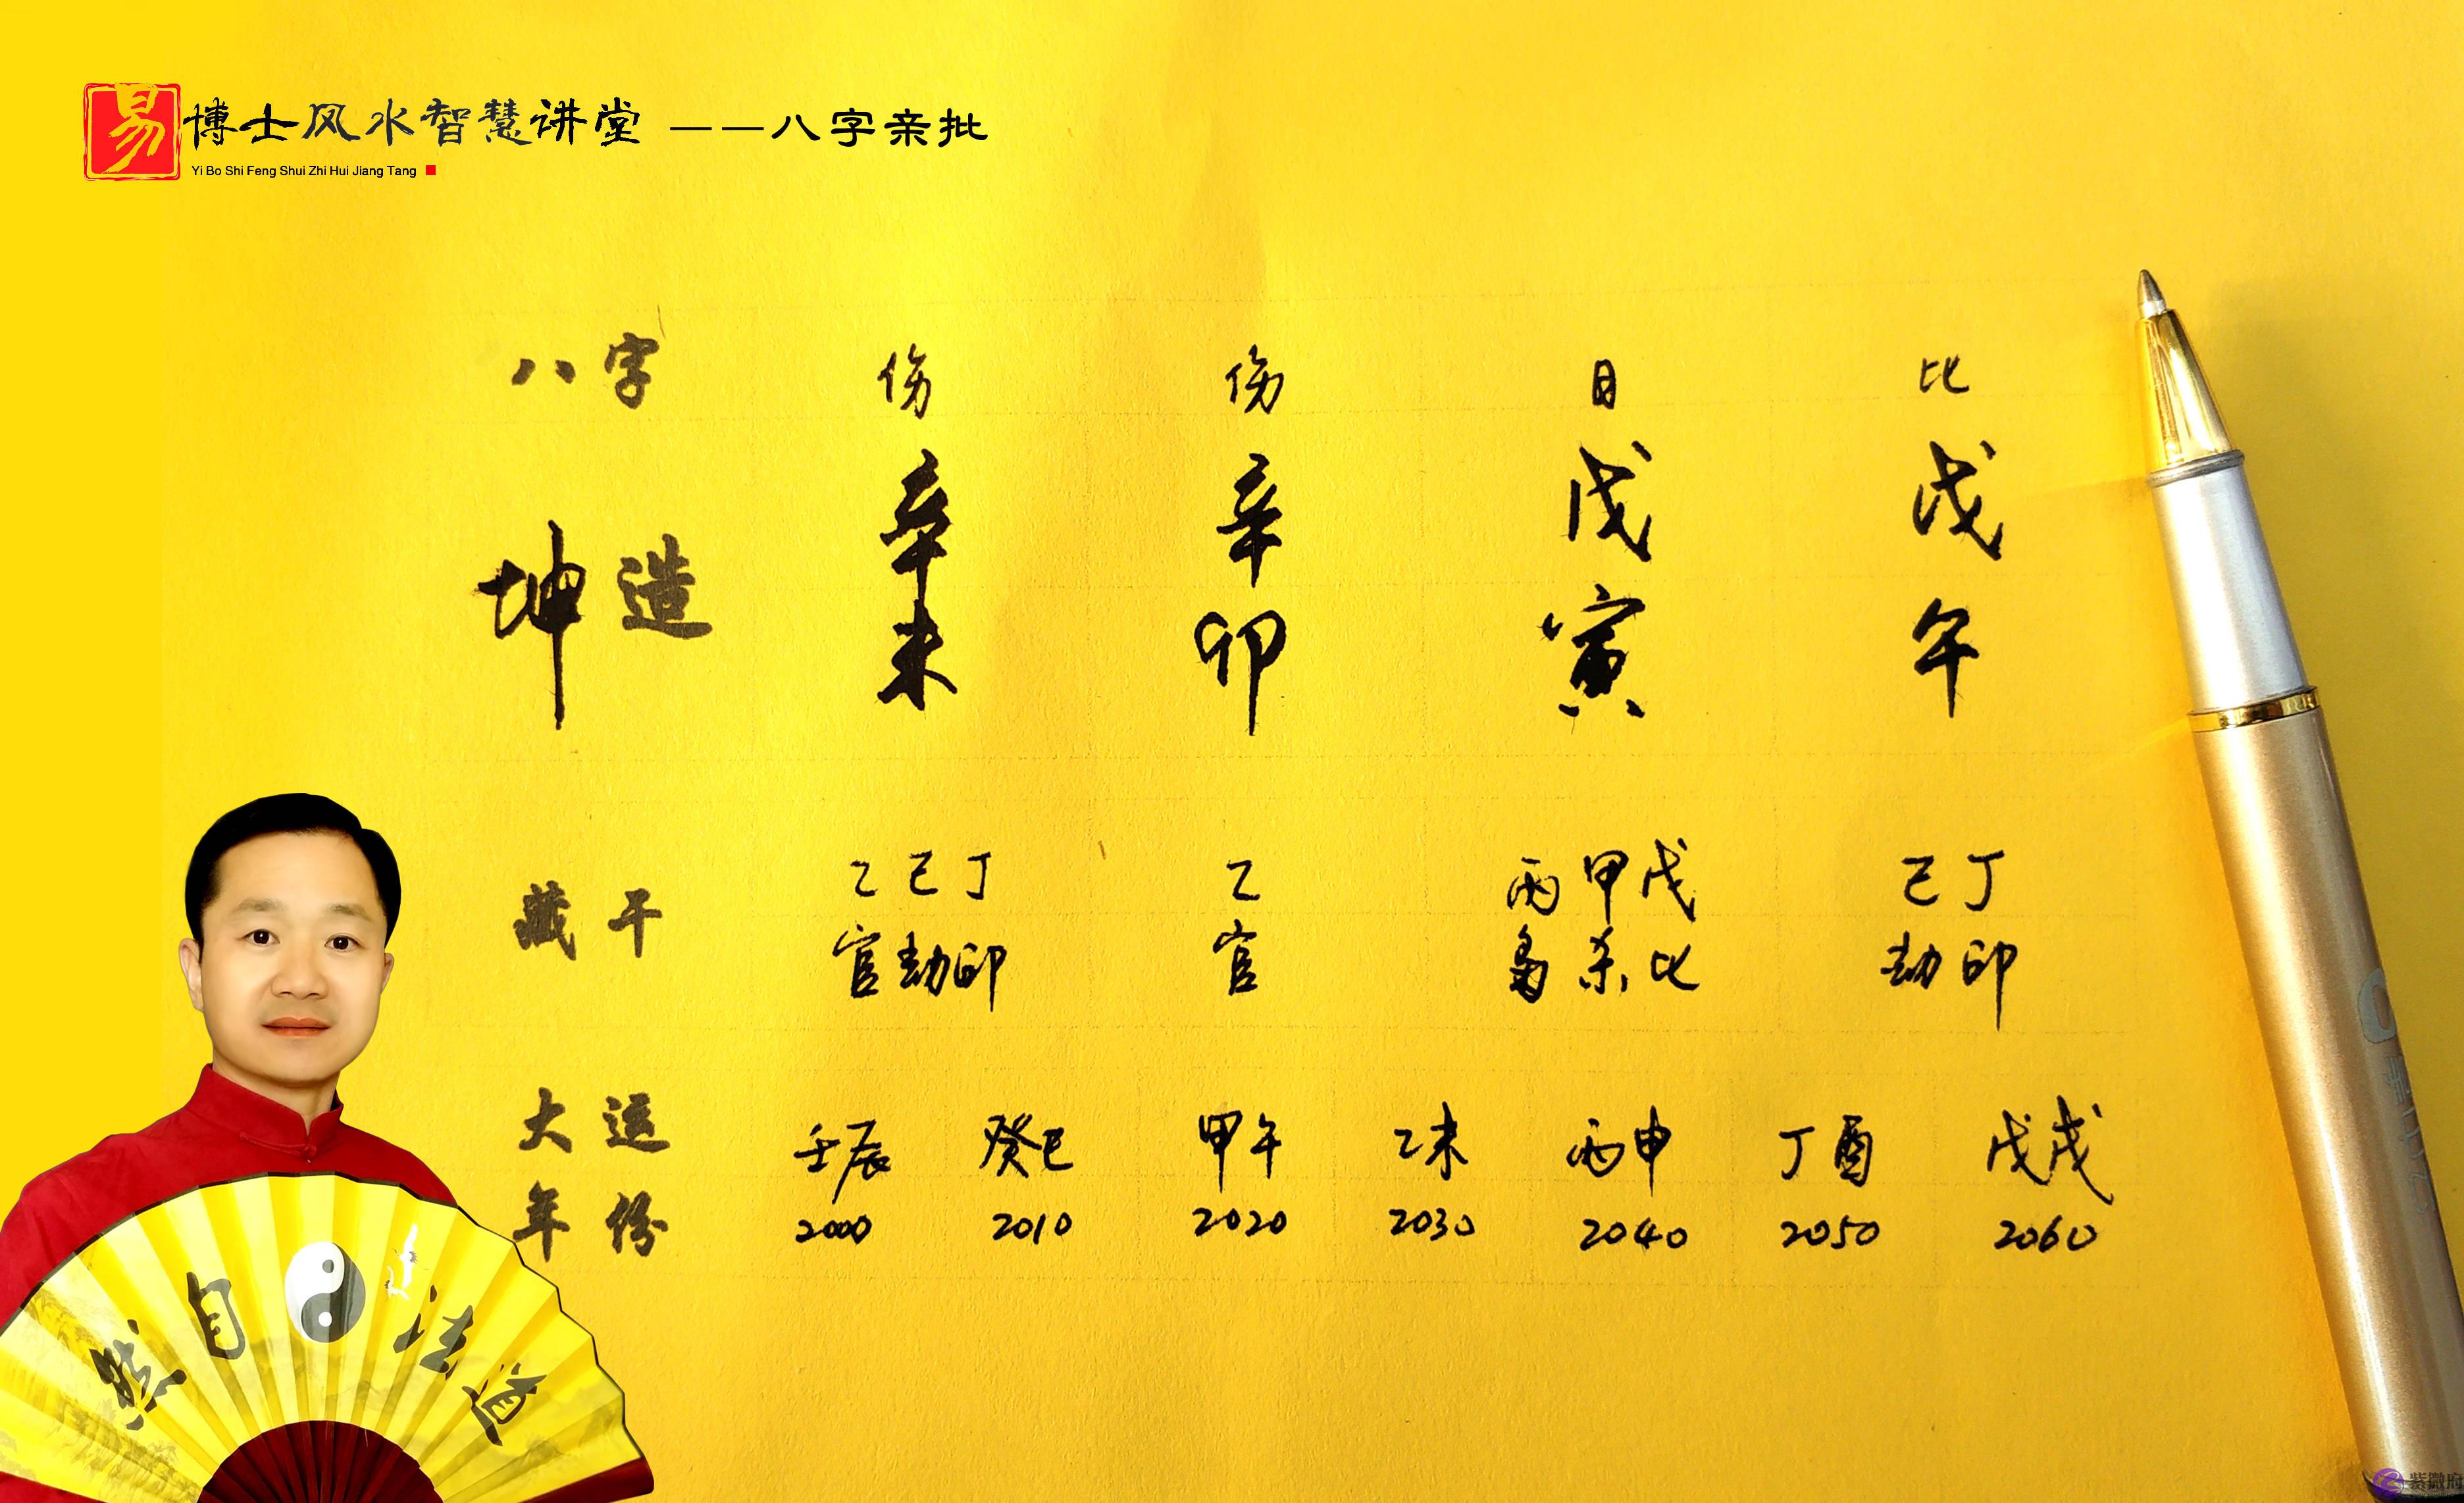 易博士风水智慧讲堂 ——八字亲批
Yi Bo Shi Feng Shui Zhi Hui Jiang Tang
八字 伤 伤 日 比
坤造 辛未 辛卯 戊寅 戊午
藏干 乙己丁 乙 丙甲戊 己丁
官劫印 官 枭杀比 劫印
大运 壬辰 癸巳 甲午 乙未 丙申 丁酉 戊戌
年份 2000 2010 2020 2030 2040 2050 2060
然自法道
紫微府